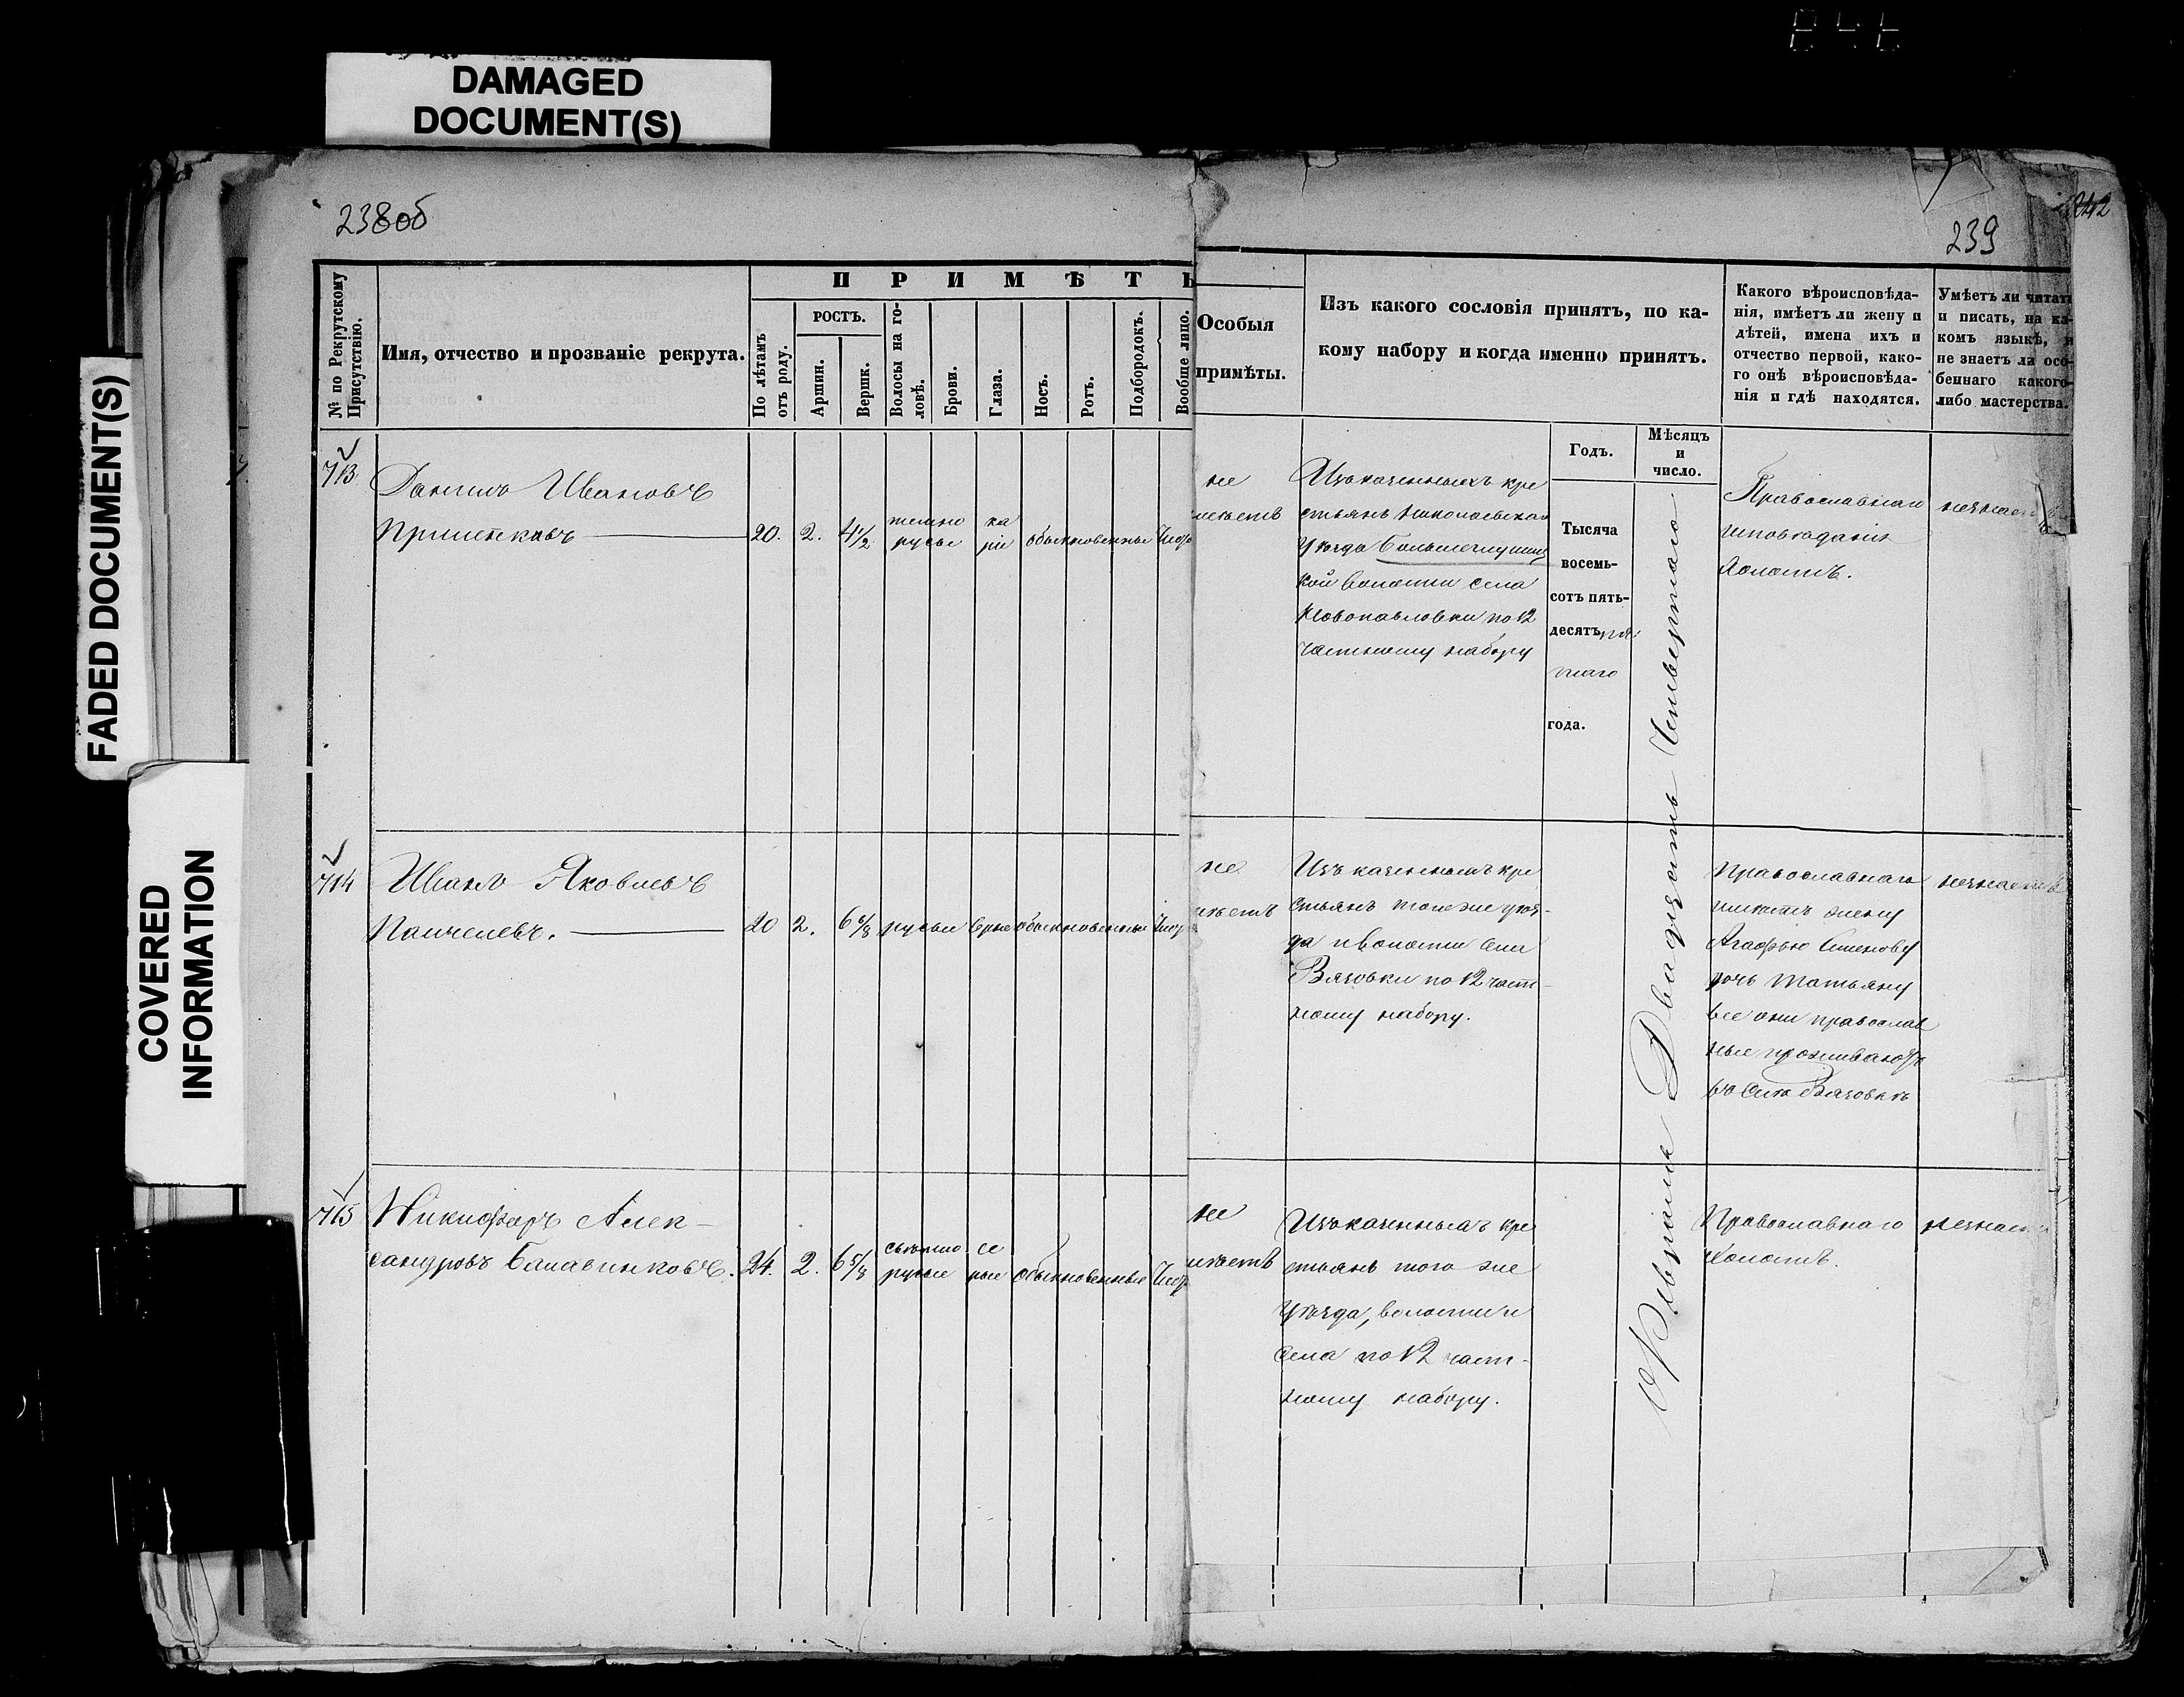 DAMAGED
DOCUMENT(S)
FADED DOCUMENT(S)
COVERED
INFORMATION
238об
239
№ по Рекрутскому
Присутствію.
Имя, отчество и прозваніе рекрута.
П Р И М Ѣ Т Ы
По лѣтамъ
отъ роду.
РОСТЪ.
Аршин.
Вершк.
Волосы на го-
ловѣ.
Брови.
Глаза.
Носъ.
Ротъ.
Подбородокъ.
Вообще лицо.
Особыя
примѣты.
Изъ какого сословія принятъ, по ка-
кому набору и когда именно принятъ.
Какого вѣроисповѣда-
нія, имѣетъ ли жену и
дѣтей, имена ихъ и
отчество первой, како-
го онѣ вѣроисповѣда-
нія и гдѣ находятся.
Умѣетъ ли читать
и писать, на ка-
комъ языкѣ, и
не знаетъ ли осо-
беннаго какого-
либо мастерства.
Годъ.
Мѣсяцъ
и
число.
713
Данило Ивановъ
20. 2. 4 1/2
темно
русые
ка
ріе
обыкновенные
не
имѣетъ
Изъ казенныхъ кре
стьянъ Николаевскаго
Уѣзда
кой волости села
Новопавловки по 12
частному набору
Тысяча
восемь-
сотъ пять-
десятъ пя
таго
года.
Февраля Двадцать Четвертаго
Православнаго
исповѣданія
Холостъ.
незнаетъ
714
Иванъ Яковлевъ
20 2. 6 6/8 русые сѣрые обыкновенные
не
имѣетъ
Изъ казенныхъ кре
стьянъ того же уѣз-
да и волости села
Вязовки по 12 част-
ному набору.
Православнаго
имѣетъ жену
Агафью Семенову
дочь Татьяну
все они православ
ные проживаютъ
въ Селѣ Вязовкѣ
незнаетъ
715
Никифоръ Алек-
сандровъ Балавинковъ.
24. 2. 6 5/8
свѣтло
русые
сѣ
рые
обыкновенные
не
имѣетъ
Изъ казенныхъ кре
стьянъ того же
Уѣзда, волости и
села по 12 част-
ному набору.
Православнаго
Холостъ.
незнаетъ